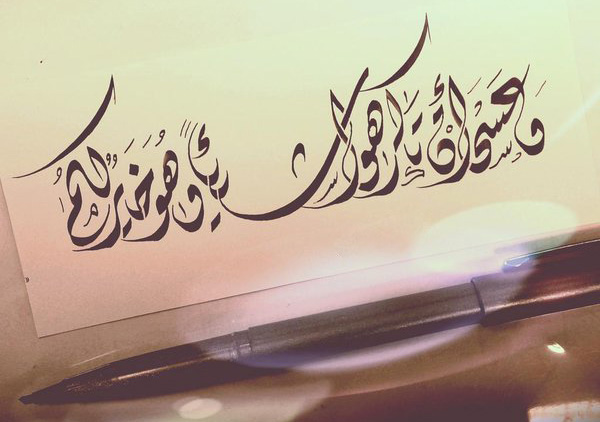 وَعَسَى أَن تَكْرَهُوا شَيْئًا وَهُوَ خَيْرٌ لَكُمْ